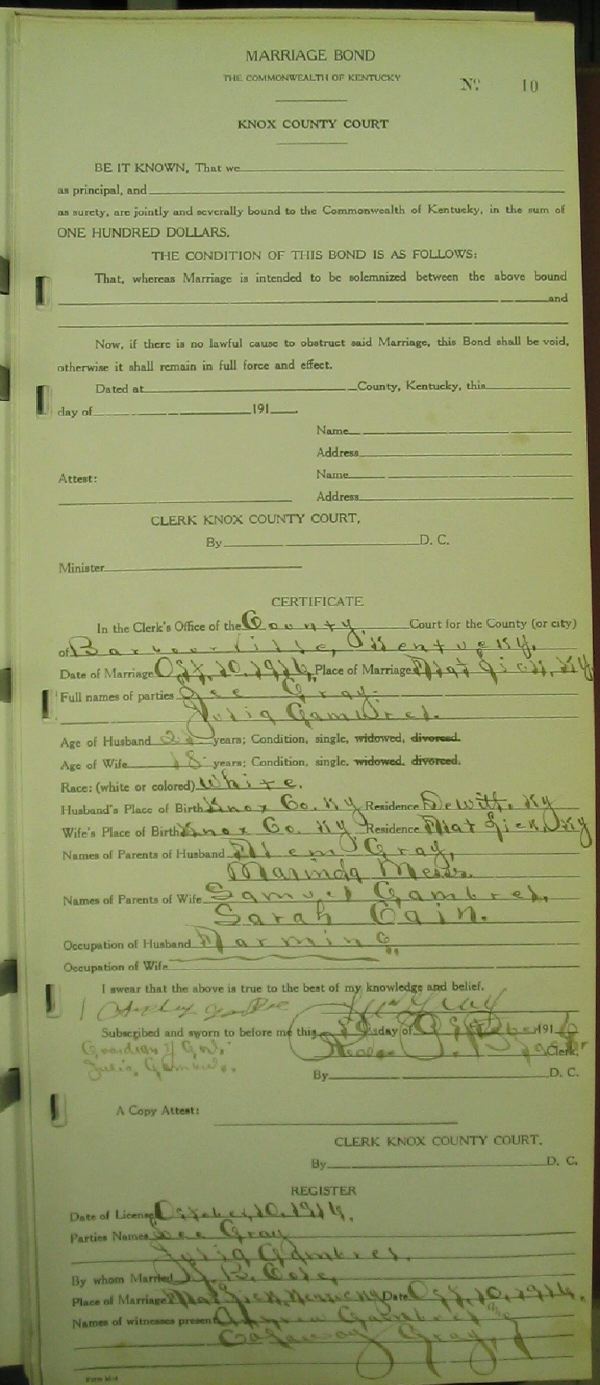 MARRIAGE BOND
THE COMMONWEALTH OF KENTUCKY
No. 10
KNOX COUNTY COURT
BE IT KNOWN, That we
as principal, and
as surety, are jointly and severally bound to the Commonwealth of Kentucky, in the sum of
ONE HUNDRED DOLLARS.
THE CONDITION OF THIS BOND IS AS FOLLOWS:
That, whereas Marriage is intended to be solemnized between the above bound
and
Now, if there is no lawful cause to obstruct said Marriage, this Bond shall be void,
otherwise it shall remain in full force and effect.
Dated at County, Kentucky, this
day of 191
Name
Address
Name
Attest:
Address
CLERK KNOX COUNTY COURT,
By D. C.
Minister
CERTIFICATE
In the Clerk's Office of the County Court for the County (or city)
of Barbourville, Kentucky.
Date of Marriage Oct. 10, 1916, Place of Marriage Flat Lick, Ky
Full names of parties Lee Gray.
Julia Gambrel.
Age of Husband years; Condition, single, widowed, divorced.
Age of Wife 18 years; Condition, single, widowed, divorced.
Race: (white or colored) White.
Husband's Place of Birth Knox Co. Ky Residence DeWitt, Ky
Wife's Place of Birth Knox Co. Ky Residence Flat Lick, Ky
Names of Parents of Husband Gray,
Marinda
Names of Parents of Wife Samuel Gambrel,
Sarah Cain.
Occupation of Husband Farming
Occupation of Wife
I swear that the above is true to the best of my knowledge and belief.
Lee Gray
Subscribed and sworn to before me this 10 day of October 1916
Guardian of
Clerk.
Julia Gambrel.
By D. C.
A Copy Attest:
CLERK KNOX COUNTY COURT.
By D. C.
REGISTER
Date of License October, 10, 1916.
Parties Names Lee Gray
Julia Gambrel.
By whom Married
Place of Marriage Flat Lick, Kentucky Date Oct. 10, 1916.
Names of witnesses present Gambrel and
Gray,